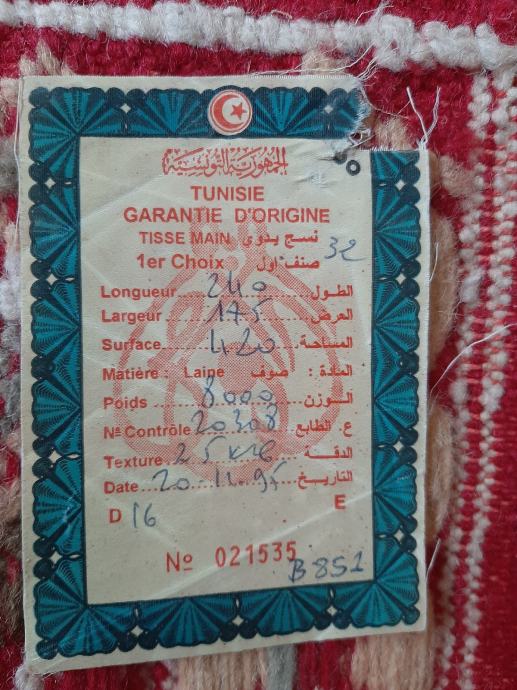 الجمهورية التونسية
TUNISIE
GARANTIE D'ORIGINE
TISSE MAIN نسج يدوي
1er Choix صنف اول 32
Longueur 240 الطول
Largeur 175 العرض
Surface 4.20 المساحة
Matière : Laine صوف : المادة
Poids 8000 الوزن
Nº Contrôle 20308 ع. الطابع
Texture 25 x 16 الدقة
Date 20-11-95 التاريخ
D 16 E
Nº 021535
B 851